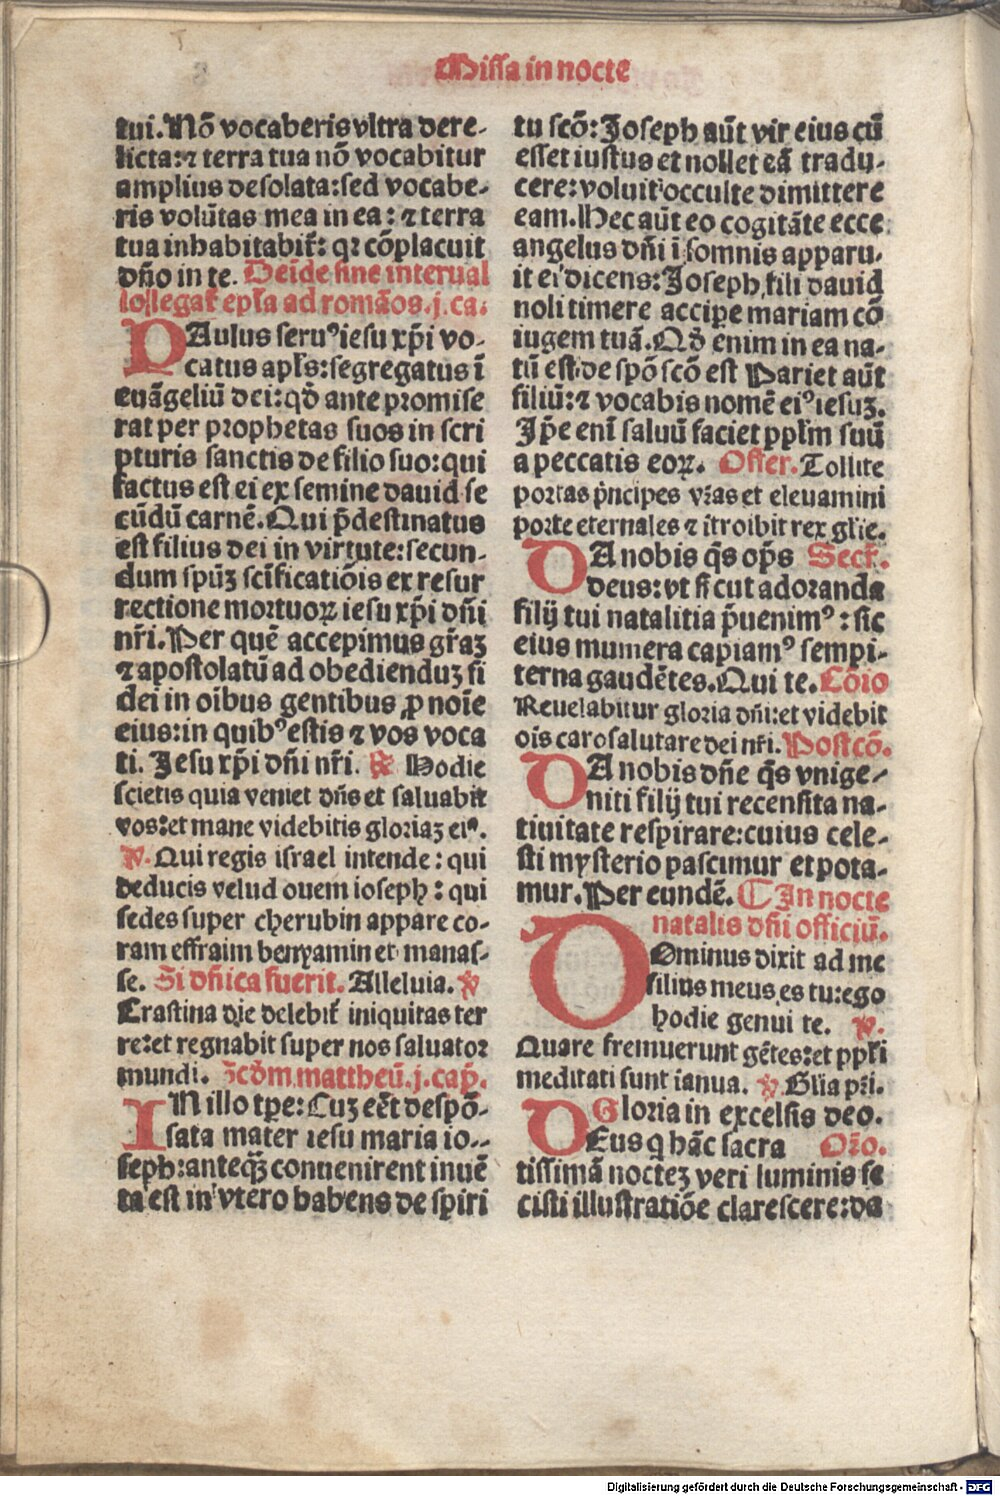 Missa in nocte
tui. Nō vocaberis vltra dere-
licta: ⁊ terra tua nō vocabitur
amplius desolata: sed vocabe-
ris volūtas mea in ea: ⁊ terra
tua inhabitabit᷑: qꝛ cōplacuit
dn̄o in te. Deīde sine interual
lo legat᷑ epl̄a ad romāos. j. ca.
PAulus seruꝰ iesu xp̄i vo-
catus apl̄s: segregatus ī
euāgeliū dei: qd̄ ante promise
rat per prophetas suos in scri
pturis sanctis de filio suo: qui
factus est ei ex semine dauid se
cūdū carnē. Qui p̄destinatus
est filius dei in virtute: secun-
dum spūꝫ scīficatiōis ex resur
rectione mortuoꝝ iesu xp̄i dn̄i
nr̄i. Per quē accepimus gr̄aꝫ
⁊ apostolatū ad obedienduꝫ fi
dei in oībus gentibus ꝓ noīe
eius: in quibꝰ estis ⁊ vos voca
ti. Jesu xp̄i dn̄i nr̄i. ℟ Hodie
scietis quia veniet dn̄s et saluabit
vos: et mane videbitis gloriaꝫ eiꝰ.
℣. Qui regis israel intende: qui
deducis velud ouem ioseph: qui
sedes super cherubin appare co-
ram effraim benyamin et manas-
se. Si dn̄ica fuerit. Alleluia. ℣
Crastina die delebit᷑ iniquitas ter
re: et regnabit super nos saluator
mundi. Scd̄m mattheū. j. cap̄.
IN illo tp̄e: Cuꝫ eēt despō-
sata mater iesu maria io-
seph: anteqꝫ̄ conuenirent inuē
ta est in vtero habens de spiri
tu scō: Joseph aūt vir eius cū
esset iustus et nollet eā tradu-
cere: voluit occulte dimittere
eam. Hec aūt eo cogitāte ecce
angelus dn̄i ī somnis apparu-
it ei dicens: Joseph fili dauid
noli timere accipe mariam cō
iugem tuā. Qd̄ enim in ea na-
tū est, de spō scō est Pariet aūt
filiū: ⁊ vocabis nomē eiꝰ iesuꝫ.
Jp̄e enī saluū faciet ppl̄m suū
a peccatis eoꝝ. Offer. Tollite
portas p̄ncipes vr̄as et eleuamini
porte eternales ⁊ itroibit rex gl̄ie.
DA nobis q̄s op̄s Secr̄.
deus: vt sicut adoranda
filij tui natalitia p̄uenimꝰ: sic
eius munera capiamꝰ sempi-
terna gaudētes. Qui te. Cōio
Reuelabitur gloria dn̄i: et videbit
ois caro salutare dei nr̄i. Postcō.
DA nobis dn̄e q̄s vnige-
niti filij tui recensita na-
tiuitate respirare: cuius cele-
sti mysterio pascimur et pota-
mur. Per eundē. ¶ In nocte
natalis dn̄i officiū.
DOminus dixit ad me
filius meus es tu: ego
hodie genui te. ℣.
Quare fremuerunt gētes: et ppl̄i
meditati sunt inania. ℣ Gl̄ia pr̄i.
Gloria in excelsis deo.
DEus q hāc sacra Oro.
tissimā nocteꝫ veri luminis fe
cisti illustratiōe clarescere: da
Digitalisierung gefördert durch die Deutsche Forschungsgemeinschaft - DFG